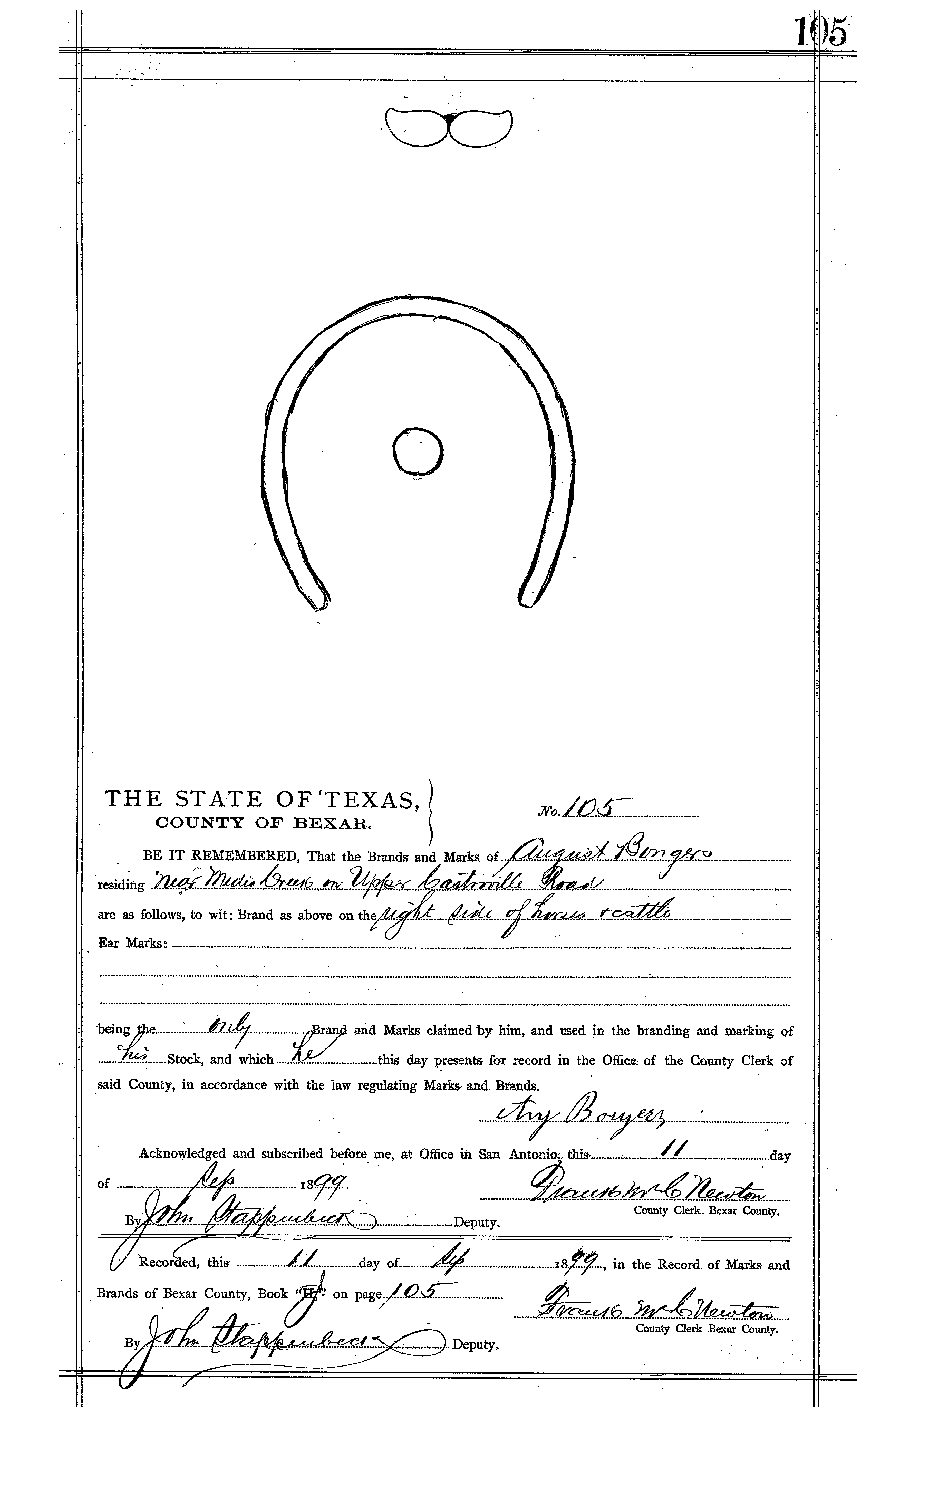 105
THE STATE OF TEXAS,
COUNTY OF BEXAR.
No. 105
BE IT REMEMBERED, That the Brands and Marks of August Bongers
residing near Medio Creek on Upper Castroville Road
are as follows, to wit: Brand as above on the right side of horses & cattle
Ear Marks:
being the only Brand and Marks claimed by him, and used in the branding and marking of
his Stock, and which he this day presents for record in the Office of the County Clerk of
said County, in accordance with the law regulating Marks and Brands.
Aug Bongers
Acknowledged and subscribed before me, at Office in San Antonio, this 11 day
of Sep 1899
Frank McC Newton
County Clerk. Bexar County.
By John Stappenbeck Deputy.
Recorded, this 11 day of Sep 1899, in the Record of Marks and
Brands of Bexar County, Book on page 105
Frank McC Newton
County Clerk Bexar County.
By John Stappenbeck Deputy.